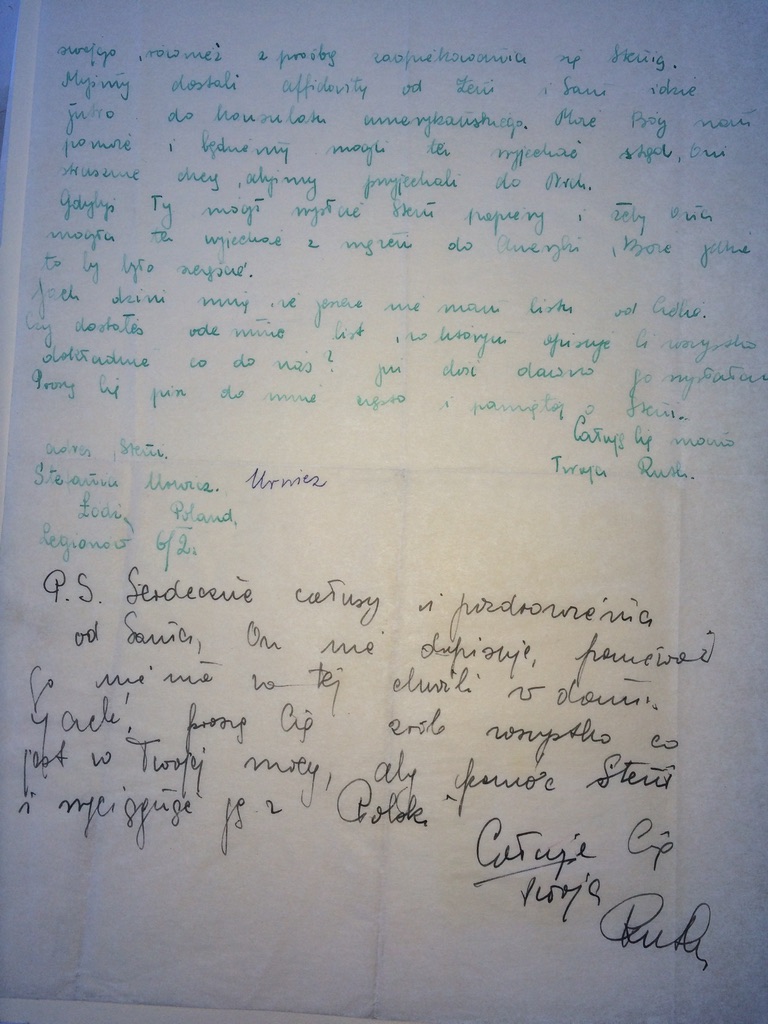 swojego, również z prośbą zaopiekowania się Stenią.
Myśmy dostali affidavity od Żeni i Sani idzie
jutro do konsulatu amerykańskiego. Może Bóg nam
pomoże i będziemy mogli też wyjechać stąd, Oni
strasznie chcą, abyśmy przyjechali do
Gdybyś Ty mógł wysłać Steni papiery i żeby ona
mogła też wyjechać z mężem do Ameryki, Boże jakie
to by było szczęście.
Jack dziwi mnie, że jeszcze nie mam listu od Ciebie.
Czy dostałeś ode mnie list, w którym opisuję Ci wszystko
dokładnie co do nas? już dość dawno go wysłałam
Proszę Cię pisz do mnie często i pamiętaj o Steni.
Całuję Cię mocno
Twoja Ruth.
adres Steni.
Stefania Urwicz. Urwicz
Łódź, Poland.
Legionów 6/2.
P.S. Serdeczne całusy i pozdrowienia
od Sania, On nie dopisuje, ponieważ
Go nie ma w tej chwili w domu.
Jack! proszę Cię zrób wszystko co
jest w Twojej mocy, aby pomóc Steni
i wyciągnąć ją z Polski
Całuję Cię
twoja
Ruth